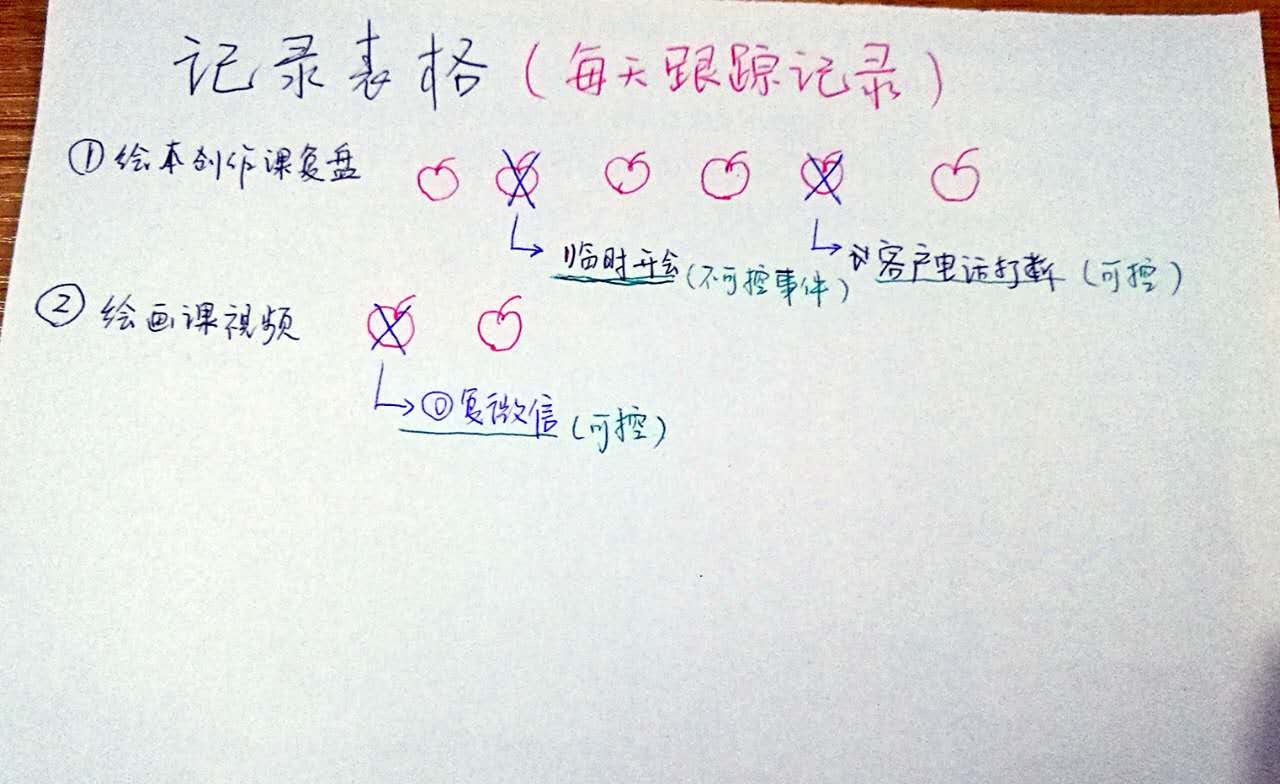 记录表格(每天跟踪记录)
①绘本创作课复盘
临时开会(不可控事件)
客户电话打断(可控)
②绘画课视频
回复微信(可控)